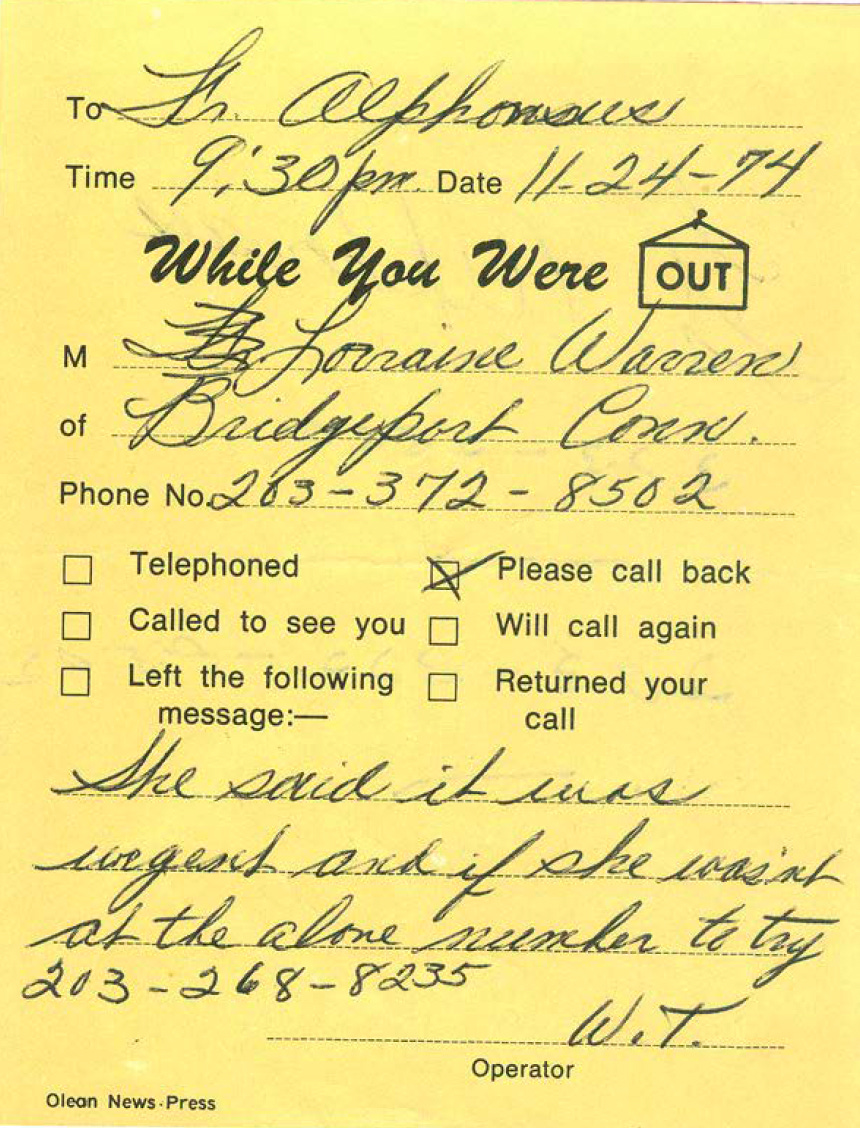 To Fr. Alphonsus
Time 9:30 pm. Date 11-24-74
While You Were OUT
M Lorraine Warren
of Bridgeport Conn.
Phone No. 203-372-8502
Telephoned Please call back
Called to see you Will call again
Left the following message:— Returned your call
She said it was
urgent and if she wasn't
at the above number to try
203-268-8235
W.T.
Operator
Olean News-Press